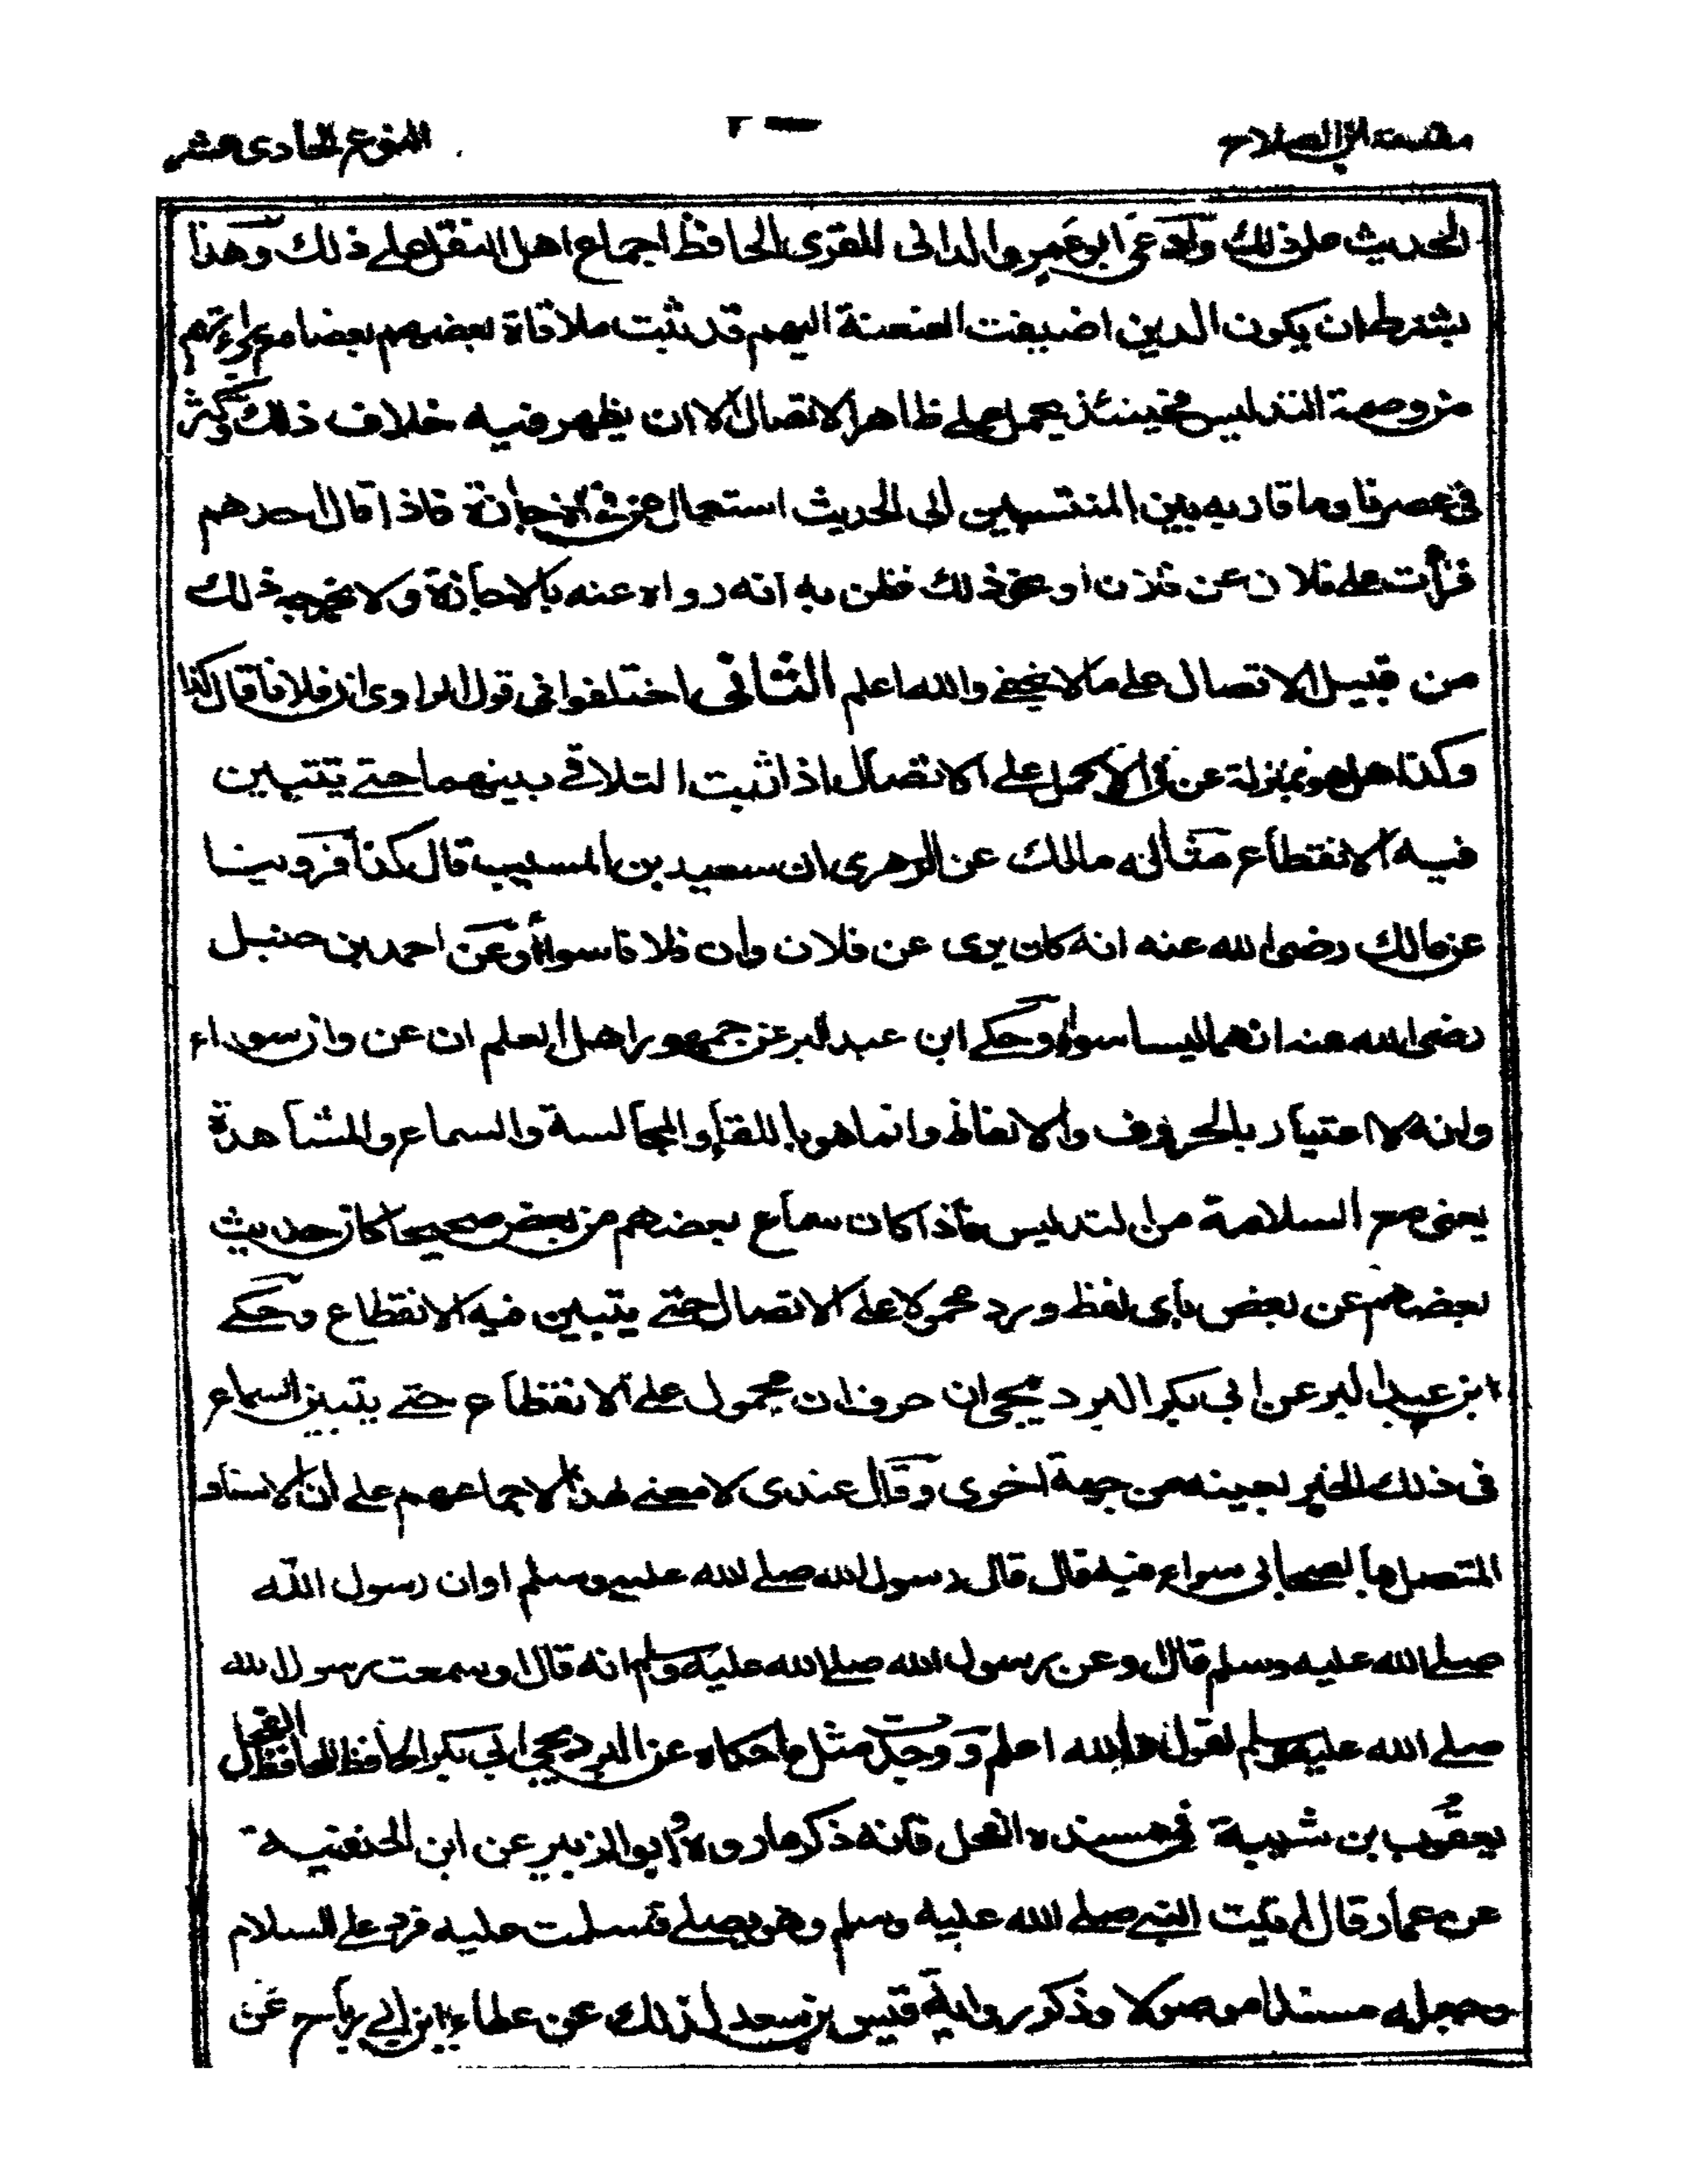 مقدمة ابن الصلاح
النوع الحادى عشر
الحديث على ذلك وادعى ابو عمرو الدانى المقرى الحافظ اجماع اهل النقل على ذلك وهذا
بشرط ان يكون الذين اضيفت العنعنة اليهم قد ثبت ملاقاة بعضهم بعضا مع براءتهم
من وصمة التدليس فحينئذ يحمل على ظاهر الاتصال الا ان يظهر فيه خلاف ذلك وكثر
فى عصرنا وما قاربه بين المنتسبين الى الحديث استعمال عن فى الاجازة فاذا قال احدهم
قرأت على فلان عن فلان او نحو ذلك فظن به انه رواه عنه بالاجازة ولا يخرجه ذلك
من قبيل الاتصال على ما لا يخفى والله اعلم الثانى اختلفوا فى قول الراوى ان فلانا قال كذا
وكذا هل هو بمنزلة عن فى الحمل على الاتصال اذا ثبت التلاقى بينهما حتى يتبين
فيه الانقطاع مثاله مالك عن الزهرى ان سعيد بن المسيب قال كذا فروينا
عن مالك رضى الله عنه انه كان يرى عن فلان وان فلانا سواء وعن احمد بن حنبل
رضى الله عنه انهما ليسا سواء وحكى ابن عبد البر عن جمهور اهل العلم ان عن وان سواء
وانه لا اعتبار بالحروف والالفاظ وانما هو باللقاء والمجالسة والسماع والمشاهدة
يعنى مع السلامة من التدليس فاذا كان سماع بعضهم من بعض صحيحا كان حديث
بعضهم عن بعض باى لفظ ورد محمولا على الاتصال حتى يتبين فيه الانقطاع وحكى
ابن عبد البر عن ابى بكر البرديجى ان حرف ان محمول على الانقطاع حتى يتبين السماع
فى ذلك الخبر بعينه من جهة اخرى وقال عندى لا معنى لهذا لاجماعهم على ان الاسناد
المتصل بالصحابى سواء فيه قال قال رسول الله صلى الله عليه وسلم او ان رسول الله
صلى الله عليه وسلم قال او عن رسول الله صلى الله عليه وسلم انه قال او سمعت رسول الله
صلى الله عليه وسلم يقول والله اعلم ووجدت مثل ما حكاه عن البرديجى ابى بكر الحافظ للحافظ الفحل
يعقوب بن شيبة فى مسنده الفحل فانه ذكر ما رواه ابو الزبير عن ابن الحنفية
عن عمار قال اتيت النبى صلى الله عليه وسلم وهو يصلى فسلمت عليه فرد على السلام
وجعله مسندا موصولا وذكر رواية قيس بن سعد لذلك عن عطاء ابن ابى رباح عن